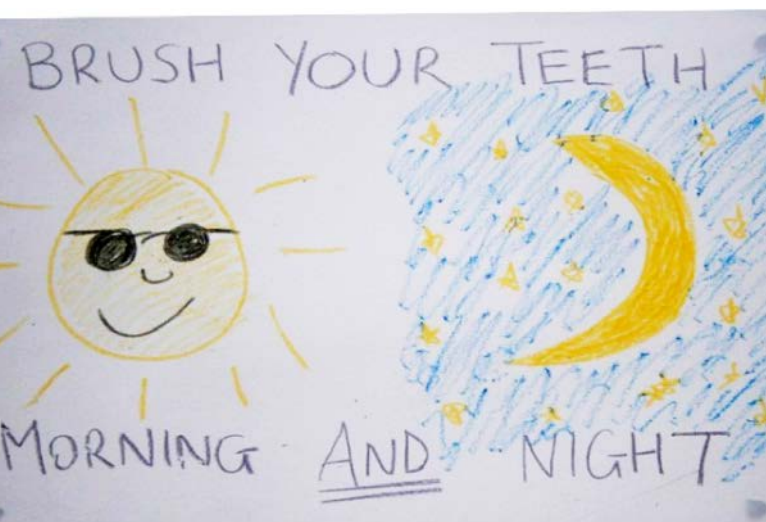 BRUSH YOUR TEETH
MORNING AND NIGHT